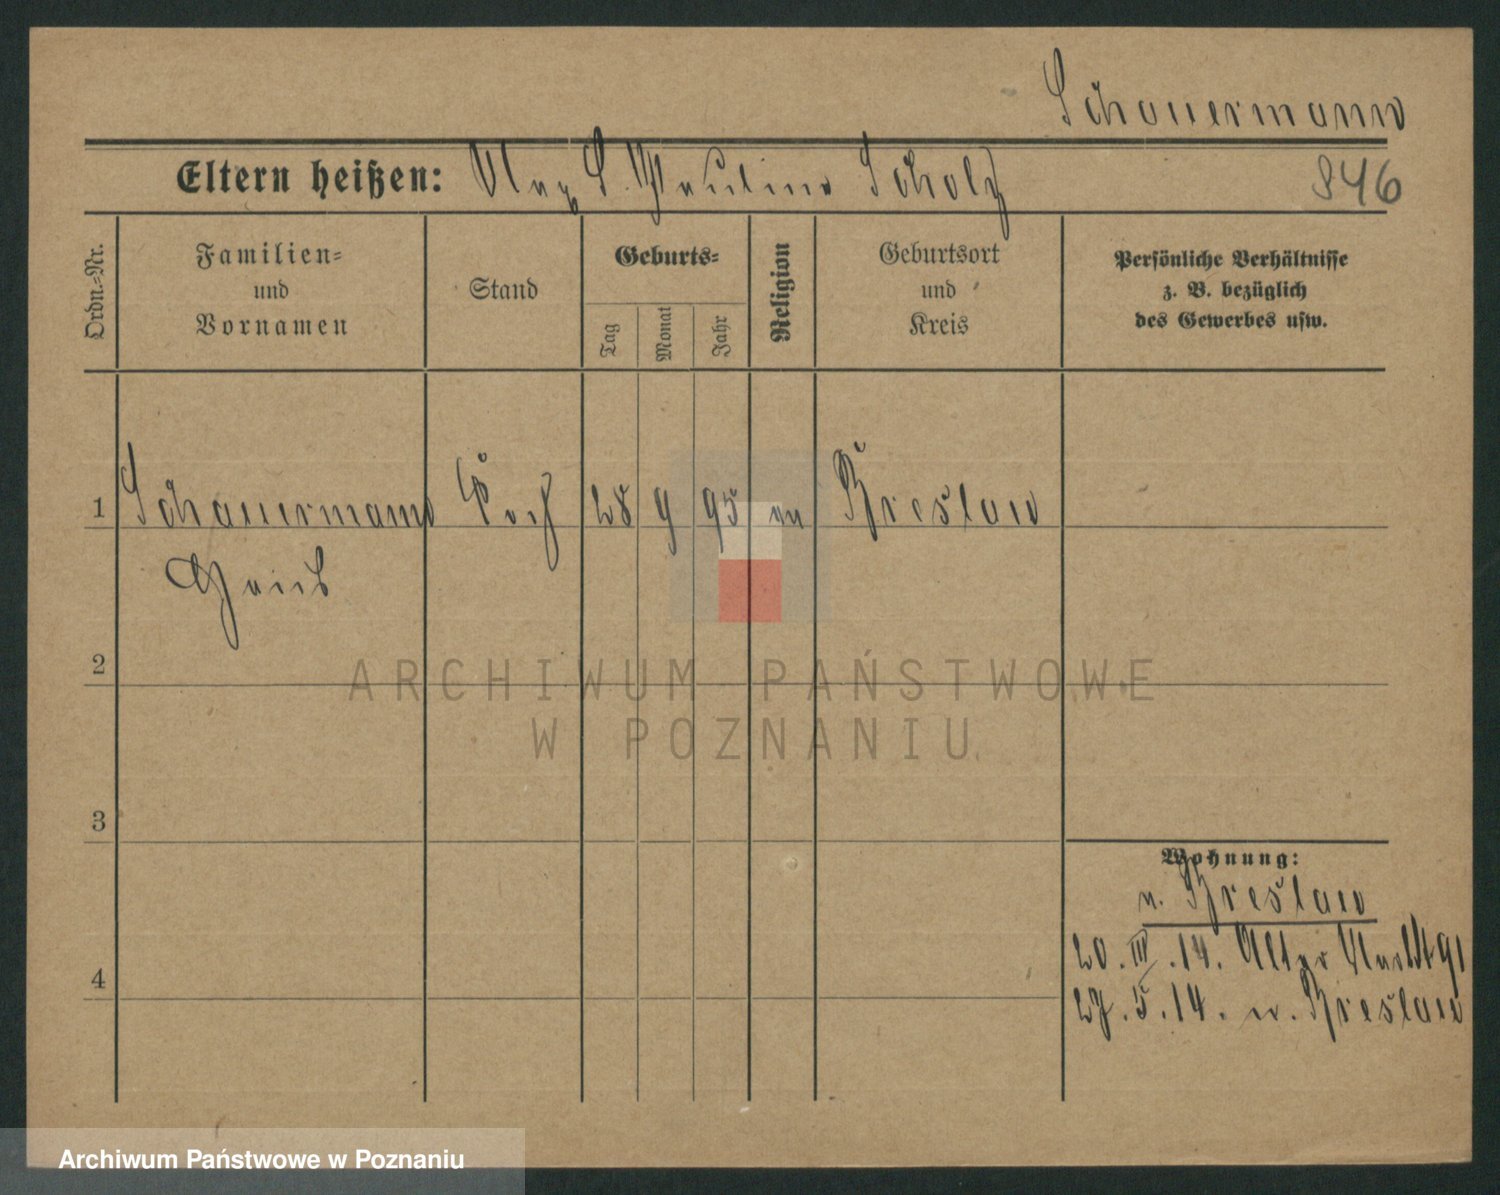 Schauermann
Eltern heißen: Paulina Scholz
846
Ordn.=Nr.
Familien=
und
Vornamen
Stand
Geburts=
Tag
Monat
Jahr
Religion
Geburtsort
und
Kreis
Persönliche Verhältnisse
z. B. bezüglich
des Gewerbes usw.
1 Schauermann 28 9 95 Breslau
2
3
4
Wohnung:
n. Breslau
20. III. 14. Alter Markt 91
27. 5. 14. n. Breslau
ARCHIWUM PAŃSTWOWE
W POZNANIU
Archiwum Państwowe w Poznaniu